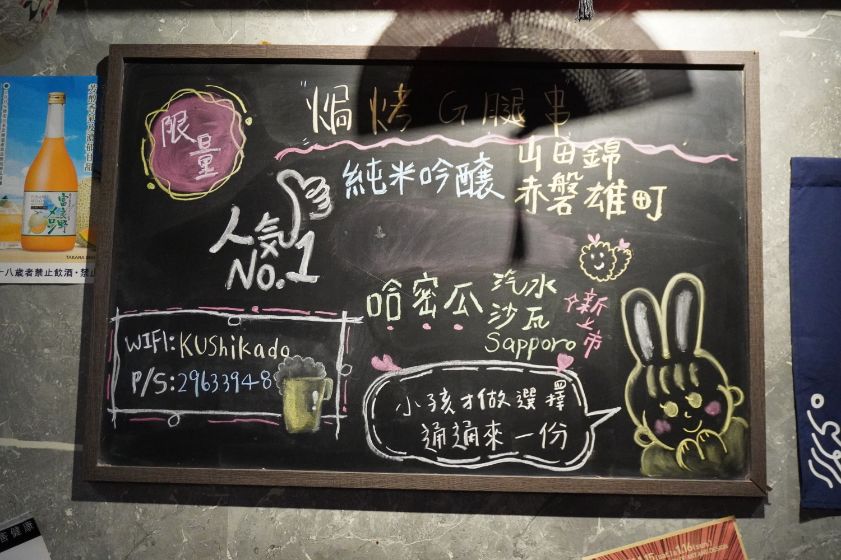 限量
焗烤G腿串
純米吟釀
山田錦
赤磐雄町
人氣
NO.1
哈密瓜
汽水
沙瓦
Sapporo
新上市
WIFI:KUShikado
P/S:29633948
小孩才做選擇
通通來一份
富良野
十八歲者禁止飲酒